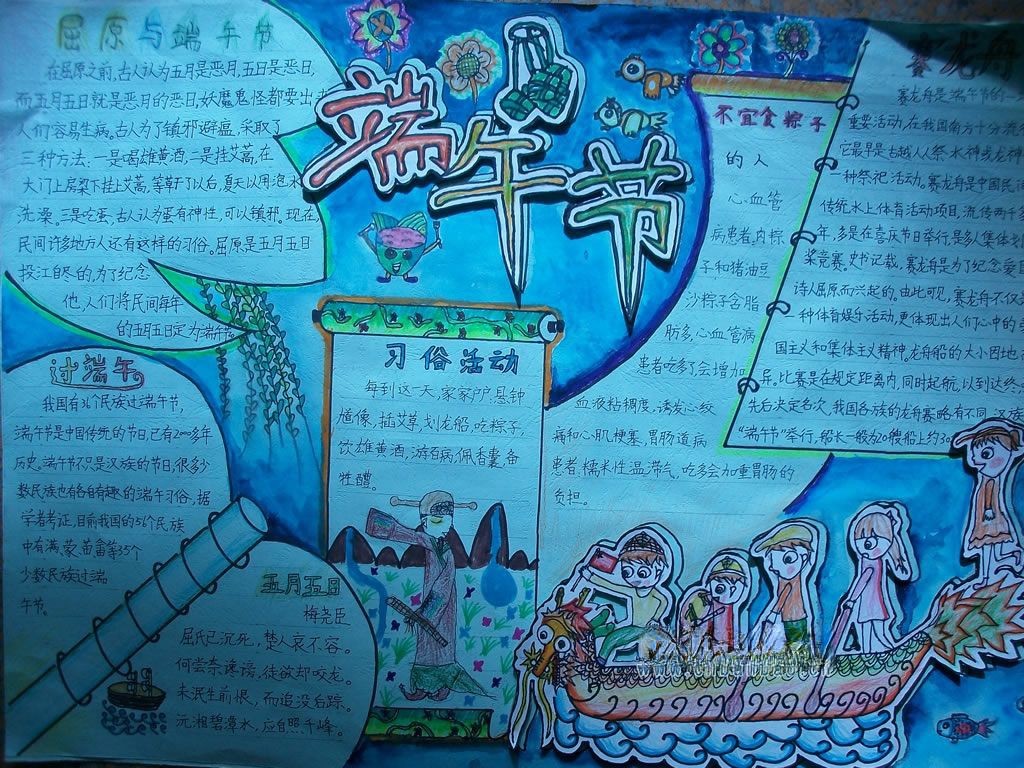 端午节
屈原与端午节
在屈原之前,古人认为五月是恶月,五日是恶日,
而五月五日就是恶月的恶日,妖魔鬼怪都要出
人们容易生病。古人为了镇邪避瘟,采取了
三种方法:一是喝雄黄酒,二是挂艾蒿,在
大门上房梁下挂上艾蒿,等干了以后,夏天以用泡水
洗澡。三是吃蛋,古人认为蛋有神性,可以镇邪。现在,
民间许多地方人还有这样的习俗。屈原是五月五日
投江自尽的,为了纪念
他,人们将民间每年
的五月五日定为端午节
过端午
我国有36个民族过端午节,
端午节是中国传统的节日,已有2000多年
历史。端午节不只是汉族的节日,很多少
数民族也有各自有趣的端午习俗,据
学者考证,目前我国的56个民族
中有满、蒙、苗畲等35个
少数民族过端
午节。
五月五日
梅尧臣
屈氏已沉死,楚人哀不容。
何尝奈谗谤,徒欲却咬龙。
未泯生前恨,而追没后踪。
沅湘碧潭水,应自照千峰。
习俗活动
每到这一天,家家户户悬钟
馗像,插艾草,划龙船,吃粽子,
饮雄黄酒,游百病,佩香囊,备
牲醴。
不宜食粽子
的人
心血管
病患者。肉粽
子和猪油豆
沙粽子含脂
肪多,心血管病
患者吃多了,会增加
血液粘稠度,诱发心绞
痛和心肌梗塞,胃肠道病
患者。糯米性温滞气,吃多会加重胃肠的
负担。
赛龙舟
赛龙舟是端午节的一
重要活动,在我国南方十分流
它最早是古越人祭水神或龙神
一种祭祀活动。赛龙舟是中国民
传统水上体育活动项目,流传两千多
年,多是在喜庆节日举行,是多人集体划
桨竞赛。史书记载,赛龙舟是为了纪念爱
诗人屈原而兴起的。由此可见,赛龙舟不仅
种体育娱乐活动,更体现出人们心中的
国主义和集体主义精神。龙舟船的大小因地
异。比赛是在规定距离内,同时起航,以到达终
先后决定名次。我国各族的龙舟赛略有不同。汉族
"端午节"举行,船长一般为20艘船上约30